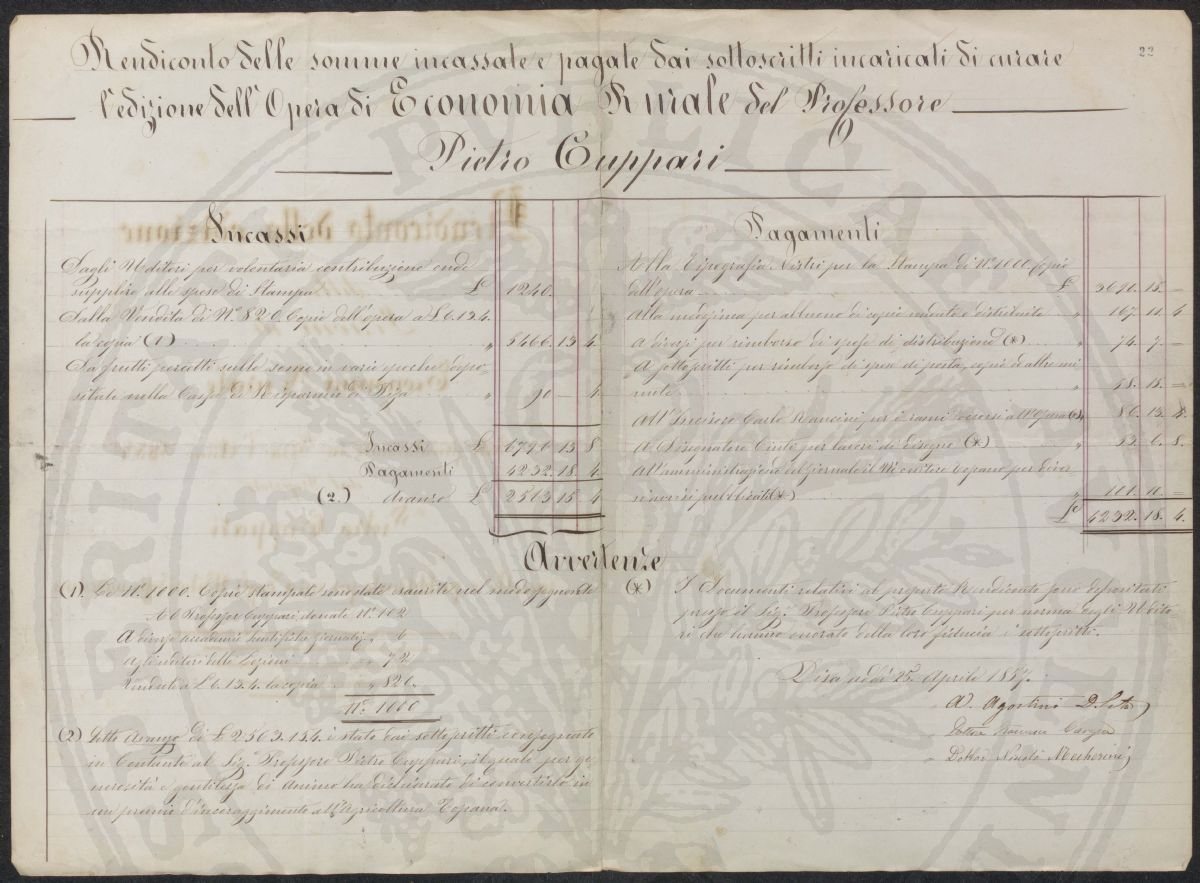 22
Rendiconto delle somme incassate e pagate dai sottoscritti incaricati di curare
l'edizione dell'Opera di Economia Rurale del Professore
Pietro Cuppari
Incassi
Dagli Uditori per volontaria contribuzione onde
supplire alle spese di Stampa £ 1240. "
Dalla Vendita di N.° 820 Copie dell'opera a £ 6.13.4.
la copia (1) " 5466. 13 4.
Da frutti percetti sulle somme in varie epoche depo-
sitate nella Cassa di Risparmio di Pisa " 90 — 4.
Incassi £ 6796 13 8
Pagamenti 4232. 18 4.
(2.) Avanzo £ 2563 15 4
Pagamenti
Alla Tipografia Nistri per la Stampa di N.° 1000 Copie
dell'opera £ 3691. 18. —
Alla medesima per abbuono di copie vendute e distribuite " 167. 11. 4
A diversi per rimborso di spese di distribuzione (*) " 74. 7. —
A sottoscritti per rimborso di spese di posta, copie ed altre mi-
nute " 58. 18. —
All'Incisore Carlo Mancini per i rami occorsi all'Opera (*) " 86. 13. 4.
A Disegnatore per lavori di Disegno (*) " 53. 6. 8.
All'amministrazione del giornale il Monitore Toscano per diver-
si avvisi pubblicati (*) " 101. 11. —
£ 4232. 18. 4.
Avvertenze
(1) Le N.° 1000. Copie stampate sono state esaurite nel modo seguente
Al Professor Cuppari donate N.° 102
A diverse accademie scientifiche giornali " 6
Agli uditori delle Lezioni " 72
Vendute a £ 6.13.4. la copia " 820.
N.° 1000
(2) Detto Avanzo di £ 2563.15.4. è stato dai sottoscritti consegnato
in Contante al Sig. Professore Pietro Cuppari, il quale per ge-
nerosità e gentilezza di Animo ha dichiarato di convertirlo in
un premio d'incoraggimento all'Agricoltura Toscana.
(*) I Documenti relativi al presente Rendiconto sono depositati
presso il Sig. Professore Pietro Cuppari per norma degli Udito-
ri che hanno onorato della loro fiducia i sottoscritti.
Pisa addì 25. Aprile 1857.
Agostini D. Seta
Dottor
Dottor